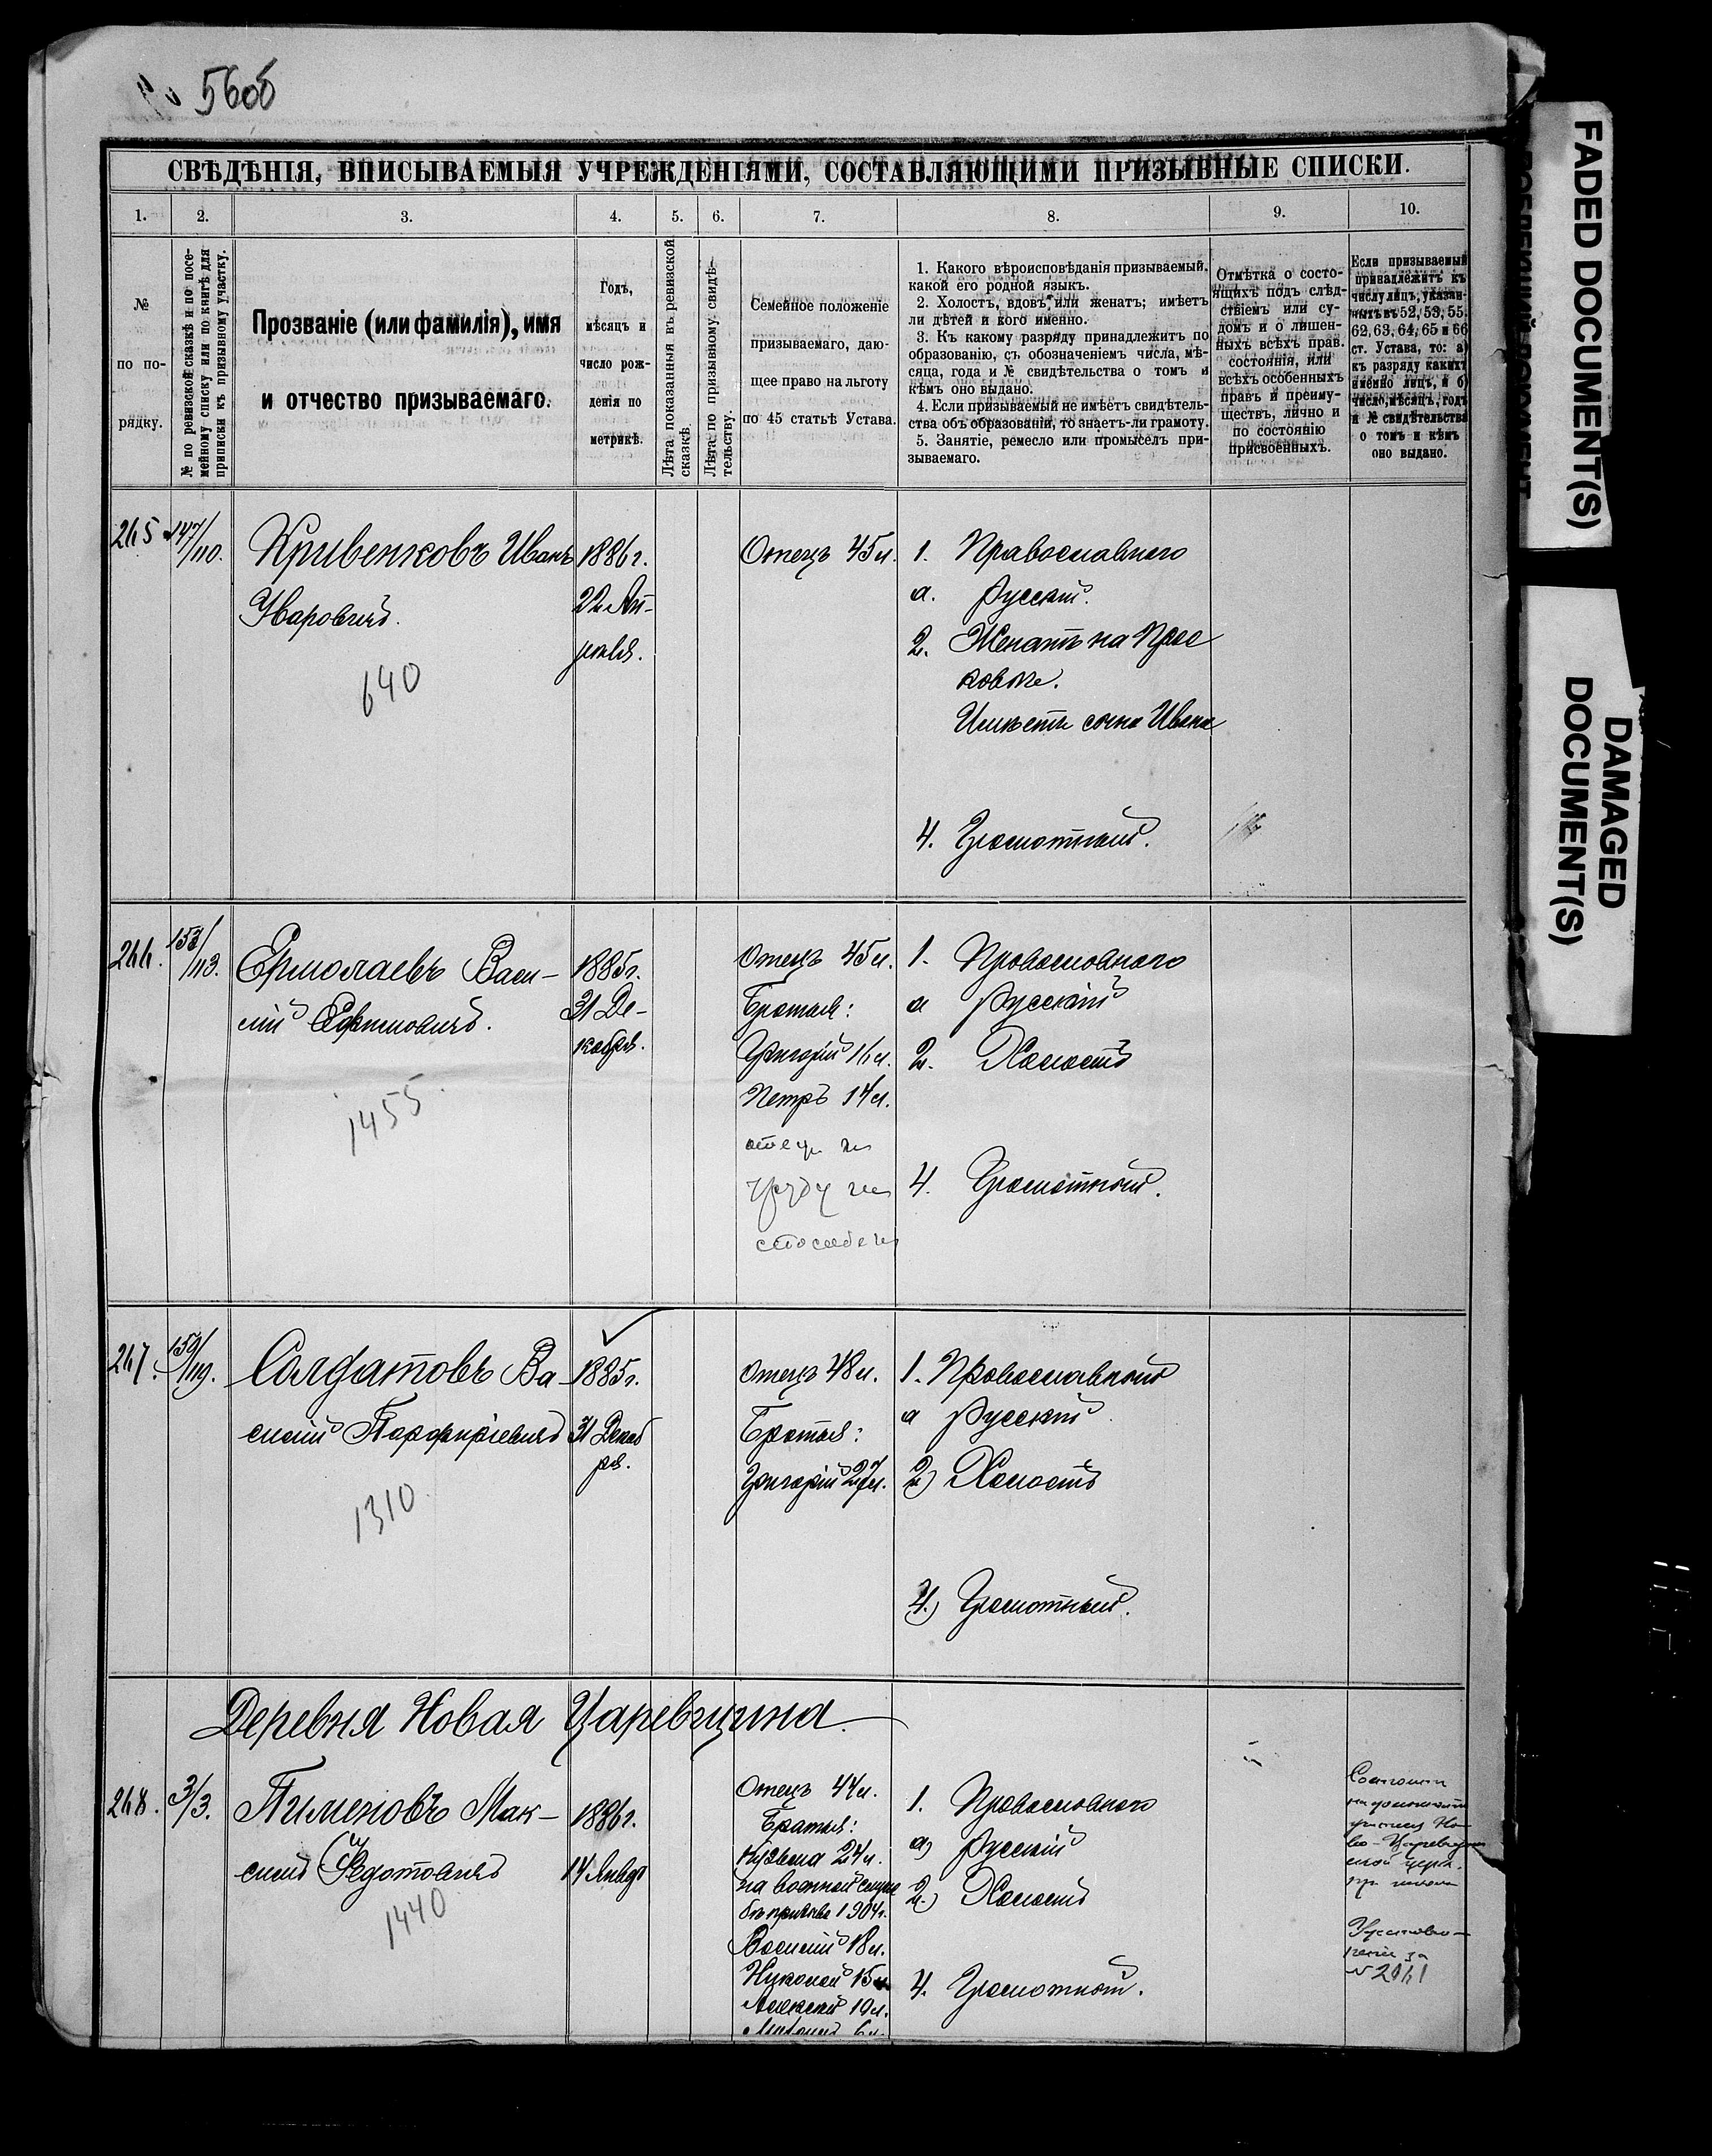 560б
СВѢДѢНІЯ, ВПИСЫВАЕМЫЯ УЧРЕЖДЕНІЯМИ, СОСТАВЛЯЮЩИМИ ПРИЗЫВНЫЕ СПИСКИ.
1. 2. 3. 4. 5. 6. 7. 8. 9. 10.
№
по по-
рядку.
№ по ревизской сказкѣ и по посе-
мейному списку или по книгѣ для
приписки къ призывному участку.
Прозваніе (или фамилія), имя
и отчество призываемаго.
Годъ,
мѣсяцъ и
число рож-
денія по
метрикѣ.
Лѣта показанныя въ ревизской
сказкѣ
Лѣта по призывному свидѣ-
тельству.
Семейное положеніе
призываемаго, даю-
щее право на льготу
по 45 статьѣ Устава.
1. Какого вѣроисповѣданія призываемый,
какой его родной языкъ.
2. Холостъ, вдовъ, или женатъ; имѣетъ
ли дѣтей и кого именно.
3. Къ какому разряду принадлежитъ по
образованію, съ обозначеніемъ числа, мѣ-
сяца, года и № свидѣтельства о томъ и
кѣмъ оно выдано.
4. Если призываемый не имѣетъ свидѣтель-
ства объ образованіи, то знаетъ-ли грамоту.
5. Занятіе, ремесло или промыселъ при-
зываемаго.
Отмѣтка о состо-
ящихъ подъ слѣд-
ствіемъ или су-
домъ и о лишен-
ныхъ всѣхъ прав.
состоянія, или
всѣхъ особенныхъ
правъ и преиму-
ществъ, лично и
по состоянію
присвоенныхъ.
Если призываемый
принадлежитъ къ
числу лицъ, указан-
ныхъ въ 52, 53, 55,
62, 63, 64, 65 и 66
ст. Устава, то: а)
къ разряду какихъ
именно лицъ, и б)
число, мѣсяцъ, годъ
и № свидѣтельства
о томъ и кѣмъ
оно выдано.
265 147/110.
Кривенковъ Иванъ
Уваровичъ.
640
1886 г.
22 Ап-
рѣля.
Отецъ 45 л.
1. Православнаго
а. Русскій.
2. Женатъ на Прас
ковьѣ.
Имѣетъ сына Ивана
4. Грамотный.
266. 153/113.
Ермолаевъ Васи-
лій Ефимовичъ.
1455
1885 г.
31 Де-
кабря.
Отецъ 45 л.
Братья:
Григорій 16 л.
Петръ 14 л.
отец къ
труду не
способен
1. Православнаго
а Русскій
2. Холостъ
4. Грамотный.
267. 159/119.
Солдатовъ Ва-
силій Парфиріевичъ
1310
1885 г.
31 Декаб
ря.
Отецъ 48 л.
Братья:
Григорій 27 л.
1. Православный
а Русскій
2) Холостъ
4.) Грамотный.
Деревня Новая Царевщина.
268. 3/3.
Пименовъ Мак-
симъ Федотовичъ
1440
1886 г.
14 Январ
Отецъ 44 л.
Братья:
Кузьма 24 л.
на военной служ
бѣ призыва 1904 г.
Василій 18 л.
Николай 15 л.
Алексѣй 10 л.
1. Православнаго
а) Русскій
2.) Холостъ
4. Грамотный.
Состоитъ
на должности
учителя Но-
во-Царевщин
ской церк.
пр. школы
за
№ 2061
FADED DOCUMENT(S)
DAMAGED
DOCUMENT(S)